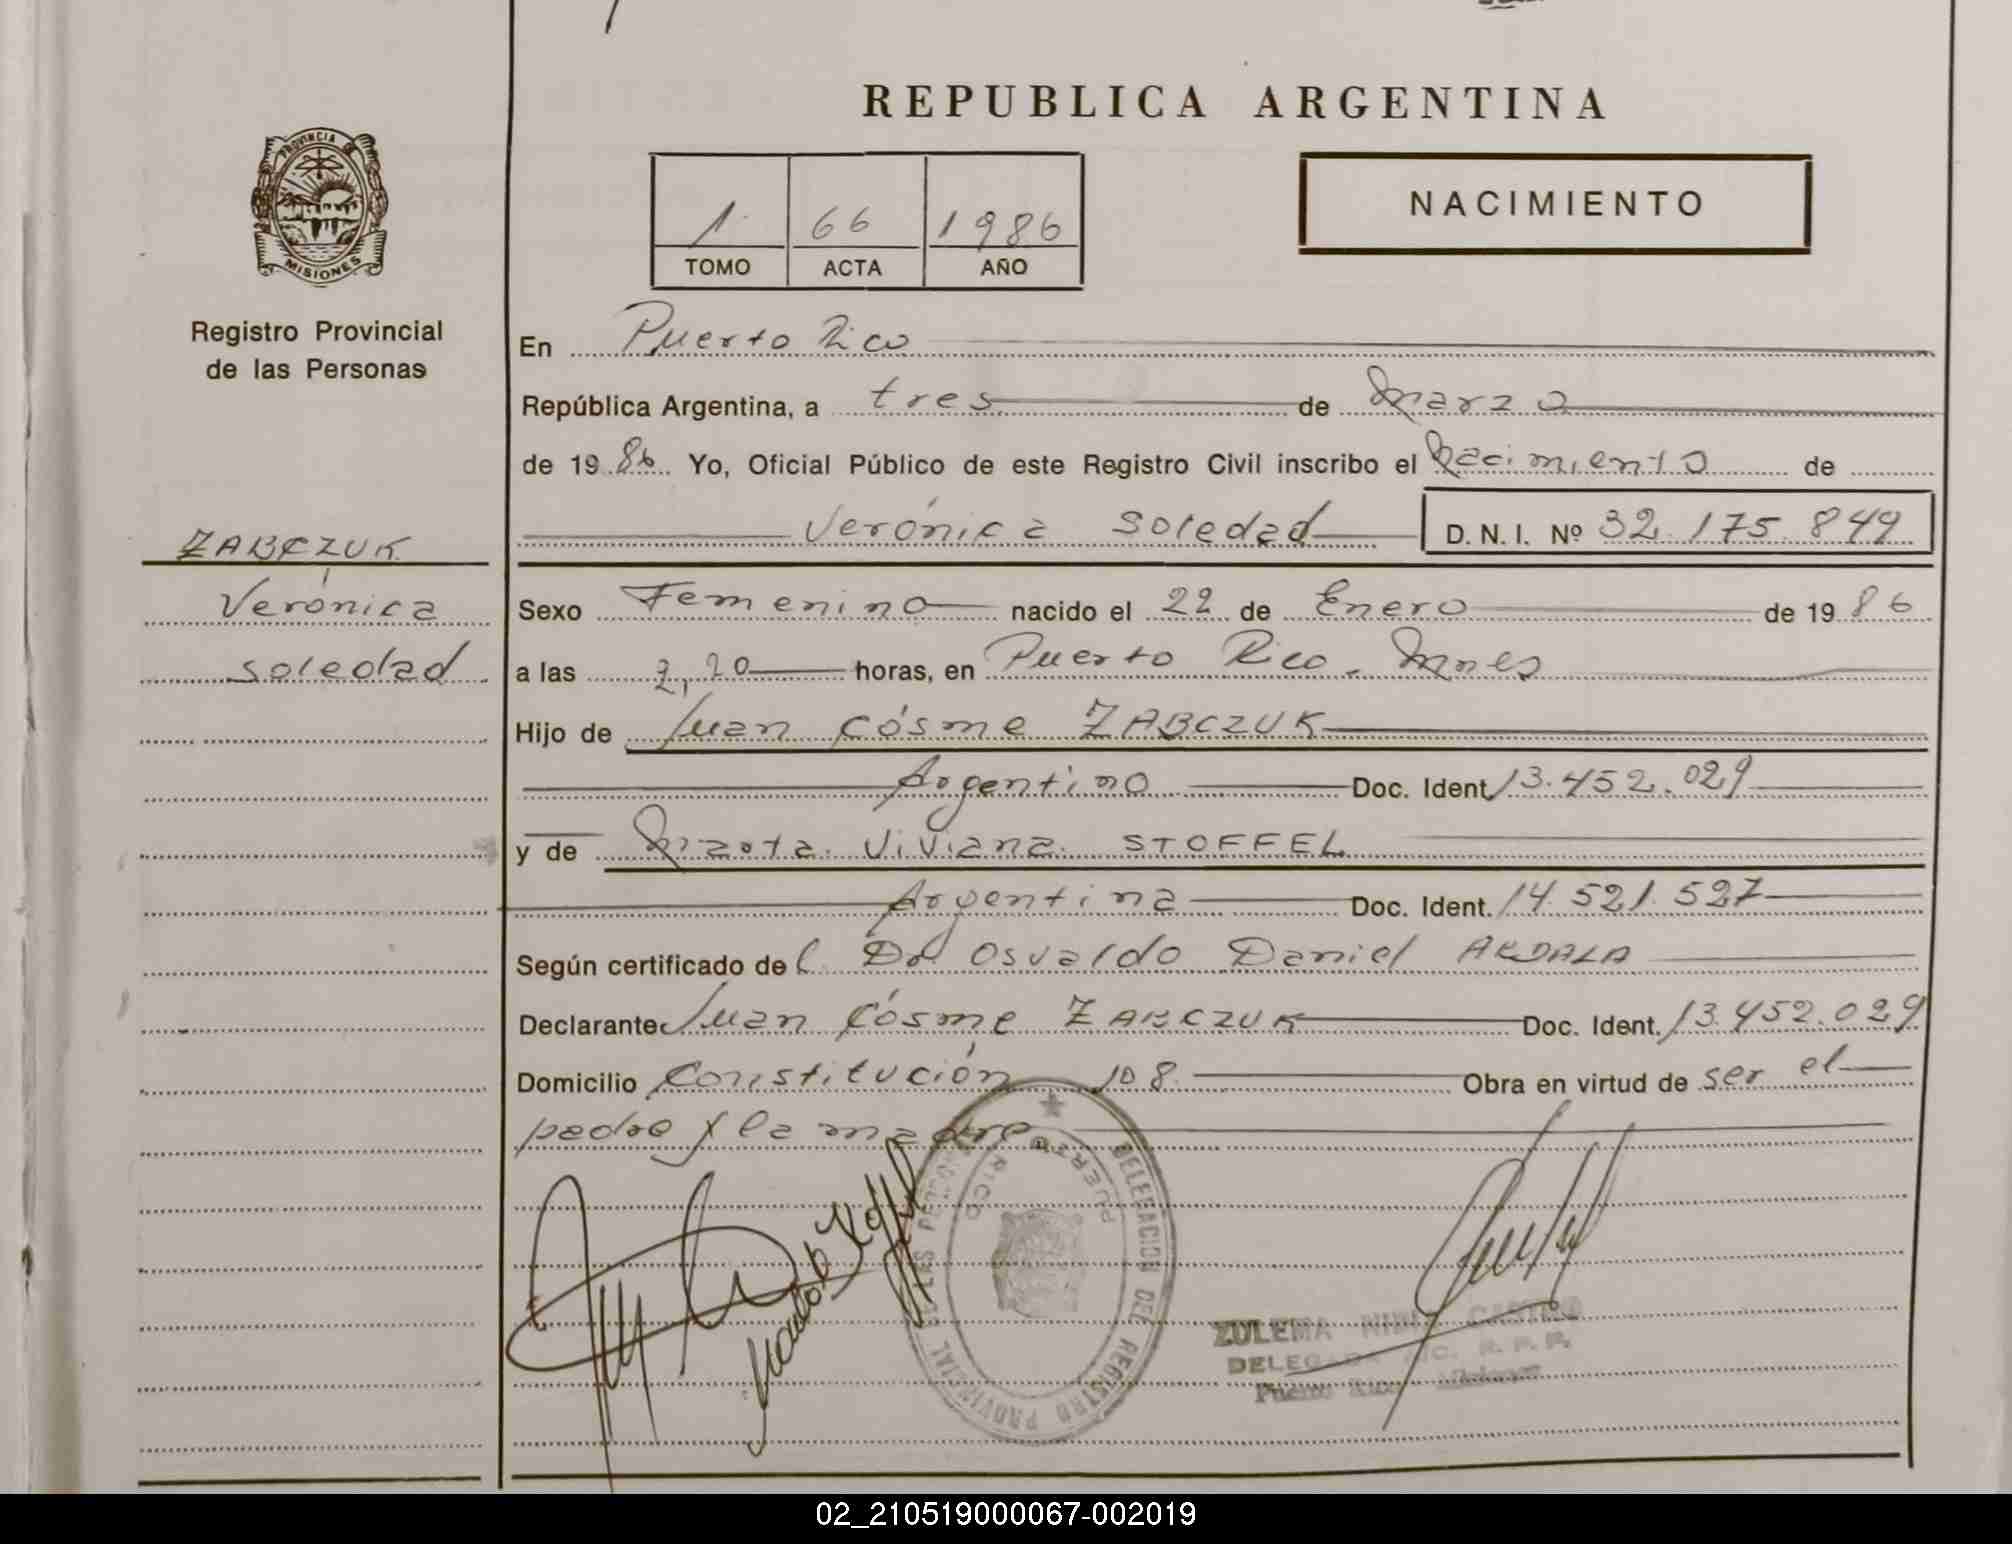 REPUBLICA ARGENTINA
PROVINCIA DE
MISIONES
Registro Provincial
de las Personas
1 66 1986
TOMO ACTA AÑO
NACIMIENTO
En Puerto Rico
República Argentina, a tres de Marzo
de 1986 Yo, Oficial Público de este Registro Civil inscribo el Nacimiento de
Verónica Soledad D. N. I. Nº 32.175.849
ZABCZUK
Verónica
Soledad
Sexo Femenino nacido el 22 de Enero de 1986
a las 2,20 horas, en Puerto Rico - Mnes
Hijo de Juan Cósme ZABCZUK
Argentino Doc. Ident. 13.452.029
y de Marta Viviana STOFFEL
Argentina Doc. Ident. 14.521.527
Según certificado del Dr Osvaldo Daniel
Declarante Juan Cósme ZABCZUK Doc. Ident. 13.452.029
Domicilio Constitución 108 Obra en virtud de ser el
padre y la madre
DELEGACION DEL REGISTRO PROVINCIAL DE LAS PERSONAS
PUERTO RICO
ZULEMA
DELEGADA R. P. P.
Puerto Rico Misiones
02_210519000067-002019